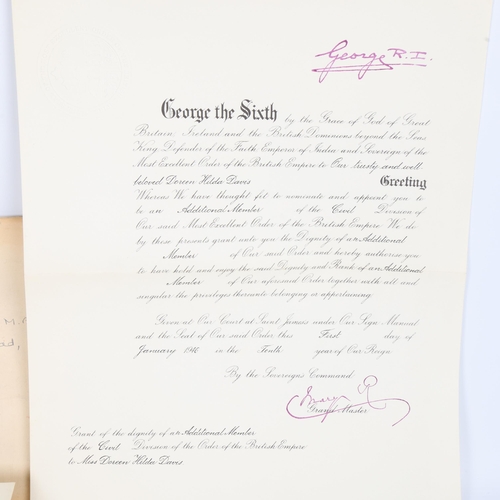 George R.I.
George the Sixth by the Grace of God of Great
Britain, Ireland and the British Dominions beyond the Seas
King, Defender of the Faith Emperor of India and Sovereign of the
Most Excellent Order of the British Empire to Our trusty and well
beloved Doreen Hilda Davis Greeting
Whereas We have thought fit to nominate and appoint you to
be an Additional Member of the Civil Division of
Our said Most Excellent Order of the British Empire We do
by these presents grant unto you the Dignity of an Additional
Member of Our said Order and hereby authorise you
to have hold and enjoy the said Dignity and Rank of an Additional
Member of Our aforesaid Order together with all and
singular the privileges thereunto belonging or appertaining.
Given at Our Court at Saint James's under Our Sign Manual
and the Seal of Our said Order this First day of
January 1946 in the Tenth year of Our Reign.
By the Sovereign's Command.
Mary R
Grand Master
Grant of the dignity of an Additional Member
of the Civil Division of the Order of the British Empire
to Miss Doreen Hilda Davis.